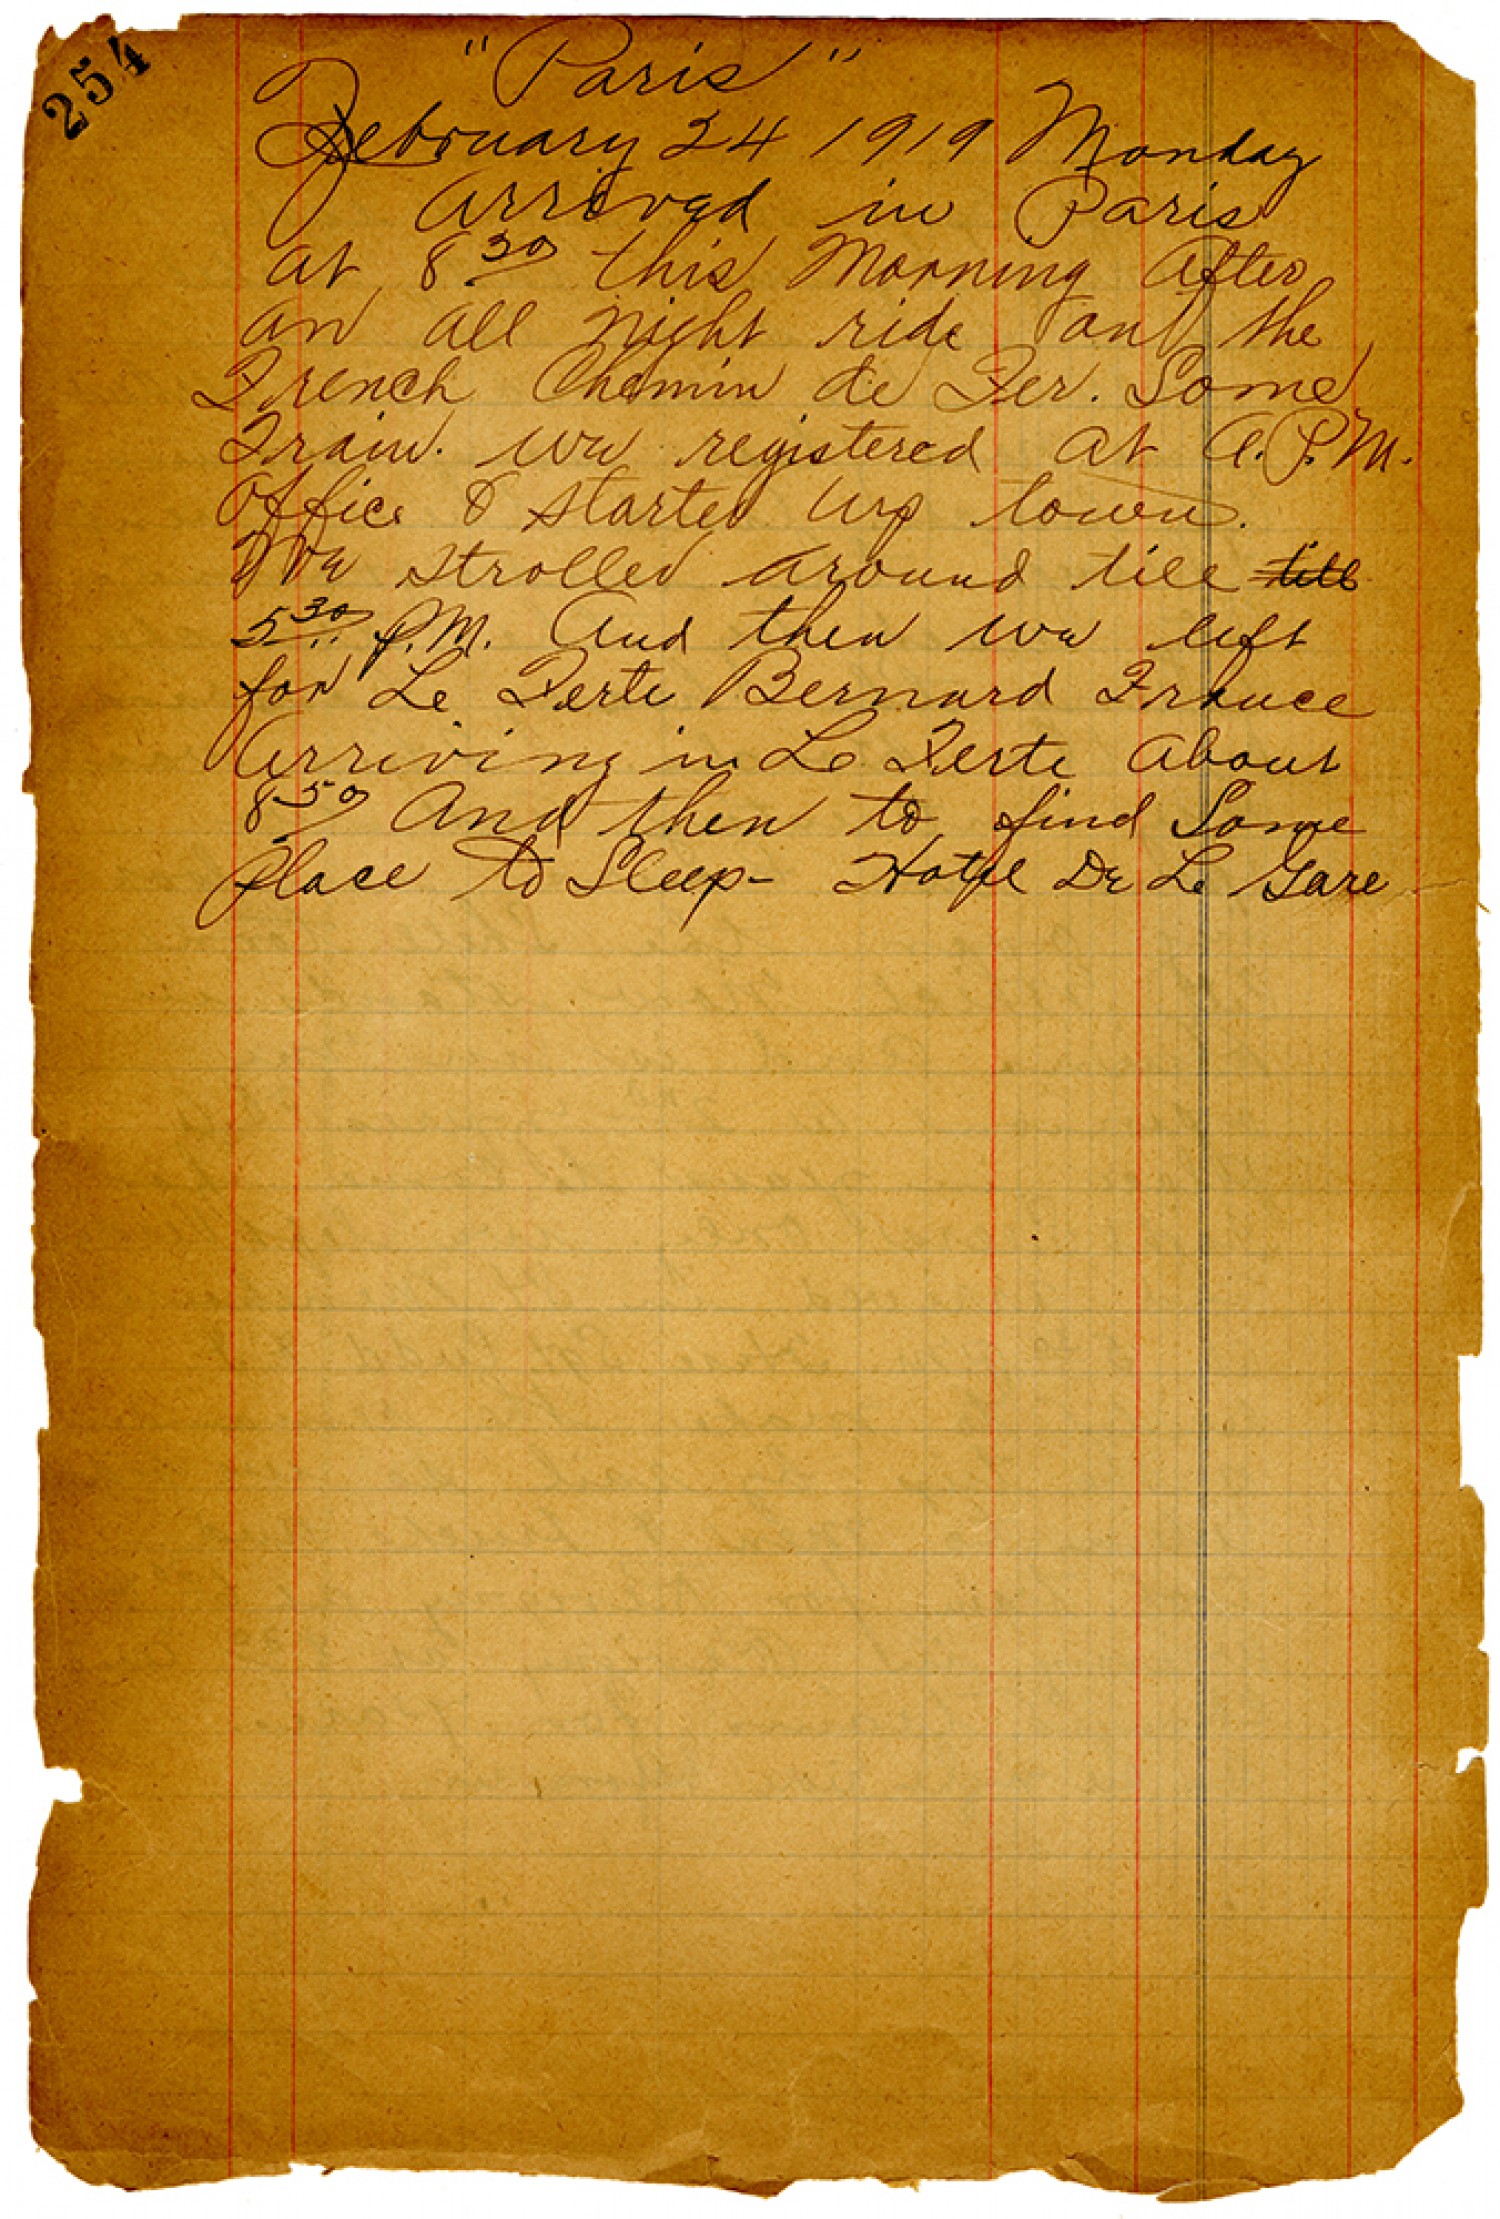 254
"Paris"
February 24 1919 Monday
Arrived in Paris
at 8 30 this Morning After
an all night ride on the
French Chemin de Fer. Some
Train. We registered at A.P.M.
Office & started up town.
We strolled around till till
5 30 P.M. And then we left
for Le Ferte Bernard France
Arriving in Le Ferte About
8 50 And then to find Some
Place to Sleep - Hotel De Le Gare